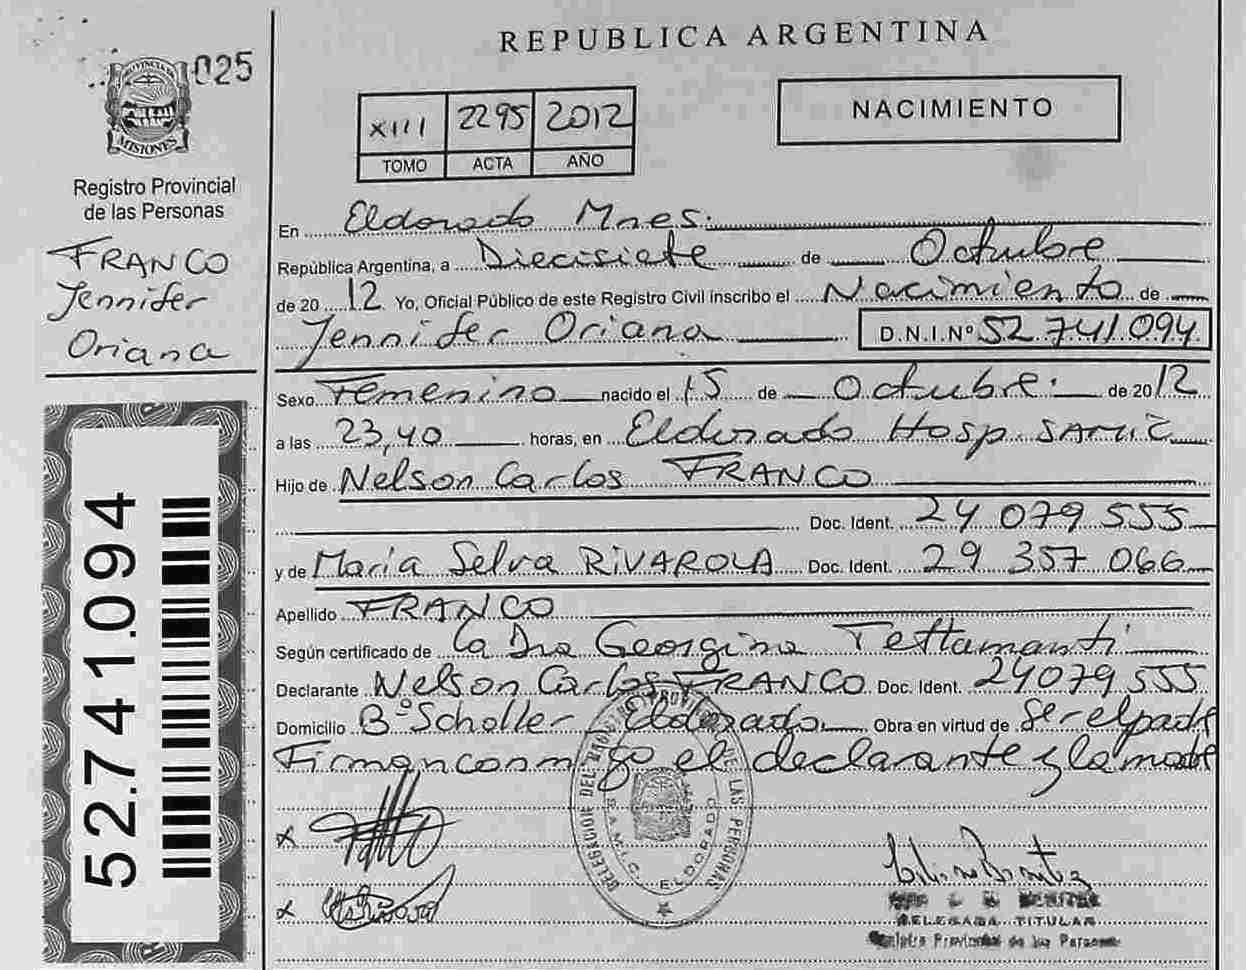 REPUBLICA ARGENTINA
025
PROVINCIA DE
MISIONES
Registro Provincial
de las Personas
FRANCO
Jennifer
Oriana
52.741.094
XIII 2295 2012
TOMO ACTA AÑO
NACIMIENTO
En Eldorado Mnes.
República Argentina, a Diecisiete de Octubre
de 2012 Yo, Oficial Público de este Registro Civil inscribo el Nacimiento de
Jennifer Oriana D.N.I.Nº 52.741.094
Sexo Femenino nacido el 15 de Octubre de 2012
a las 23,40 horas, en Eldorado Hosp. SAMIC
Hijo de Nelson Carlos FRANCO
Doc. Ident. 24 079 555
y de Maria Selva RIVAROLA Doc. Ident. 29 357 066
Apellido FRANCO
Según certificado de la Dra Georgina Tettamanti
Declarante Nelson Carlos FRANCO Doc. Ident. 24079555
Domicilio Bº Scholler Eldorado Obra en virtud de Ser el padre
Firman conmigo el declarante y la madre
DELEGACION DEL REGISTRO PROVINCIAL DE LAS PERSONAS
S.A.M.I.C. ELDORADO
DELEGADA TITULAR
Registro Provincial de las Personas